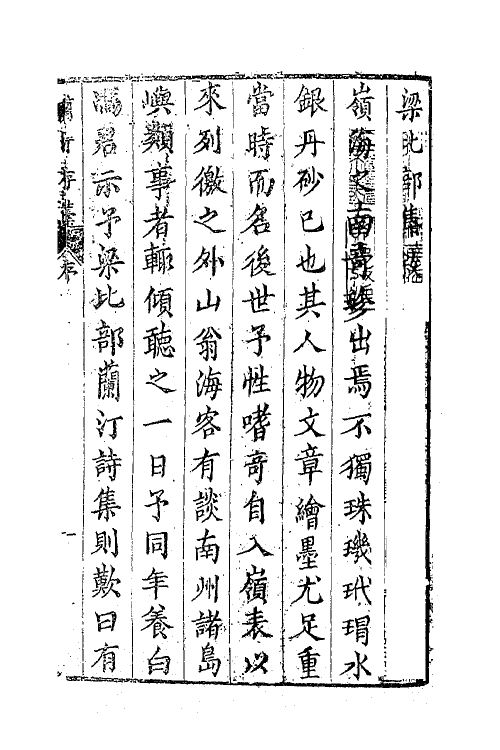 梁比部集
嶺海之南奇珍出焉不獨珠璣玳瑁水
銀丹砂已也其人物文章繪墨尤足重
當時而名後世予性嗜奇自入嶺表以
來列徼之外山翁海客有談南州諸島
嶼類事者輒傾聽之一日予同年養白
馮君示予梁比部蘭汀詩集則歎曰有
存 序
一